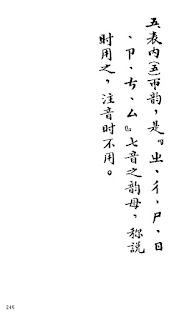 五、表内(五)帀韵，是『ㄓ、ㄔ、ㄕ、ㄖ
、ㄗ、ㄘ、ㄙ』七音之韵母，称说
时用之，注音时不用。
246